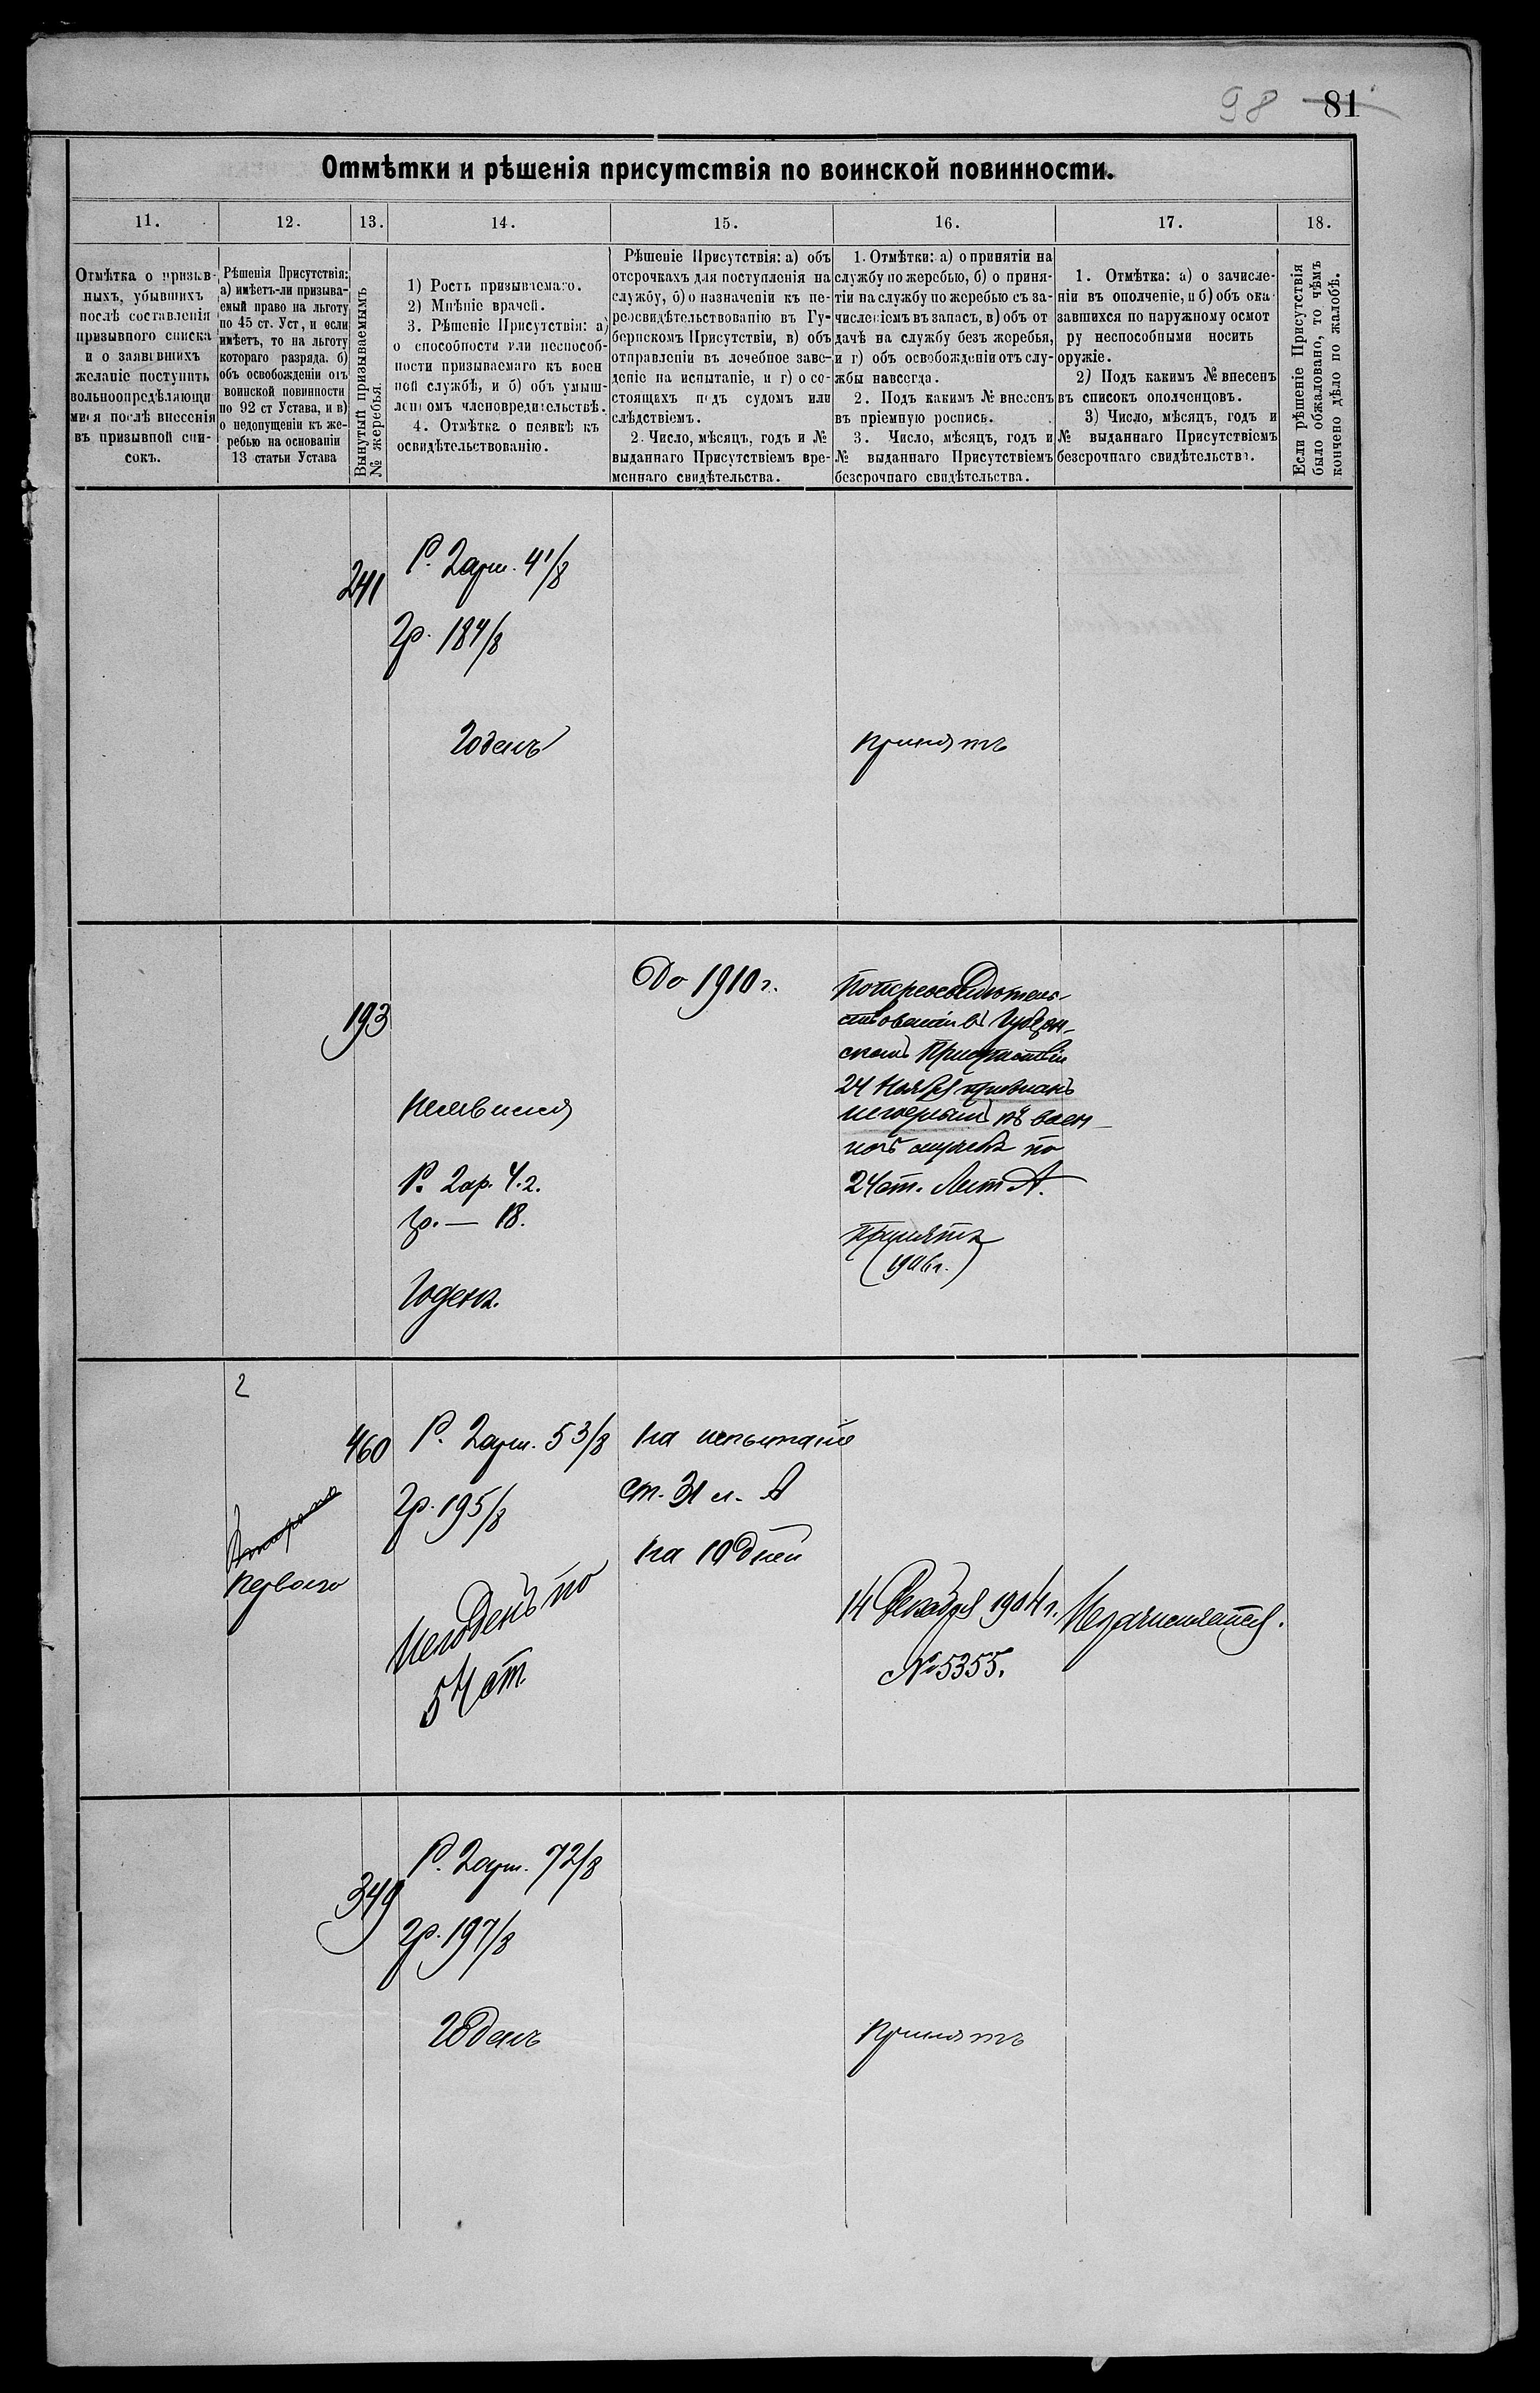 98 81
Отмѣтки и рѣшенія присутствія по воинской повинности.
11. 12. 13. 14. 15. 16. 17. 18.
Отмѣтка о призыв-
ныхъ, убывшихъ
послѣ составленія
призывного списка
и о заявившихъ
желаніе поступить
вольноопредѣляющи
мися послѣ внесенія
въ призывной спи-
сокъ.
Рѣшенія Присутствія:
а) имѣетъ-ли призыва-
емый право на льготу
по 45 ст. Уст, и если
имѣетъ, то на льготу
котораго разряда. б)
объ освобожденіи отъ
воинской повинности
по 92 ст Устава, и в)
о недопущеніи къ же-
ребью на основаніи
13 статьи Устава
Вынутый призываемымъ
№ жеребья.
1) Ростъ призываемаго.
2) Мнѣніе врачей.
3. Рѣшеніе Присутствія: а)
о способности или неспособ-
ности призываемаго къ воен
ной службѣ, и б) объ умыш-
ленномъ членовредительствѣ.
4. Отмѣтка о неявкѣ къ
освидѣтельствованію.
Рѣшеніе Присутствія: а) объ
отсрочкахъ для поступленія на
службу, б) о назначеніи къ пе-
реосвидѣтельствованію въ Гу-
бернскомъ Присутствіи, в) объ
отправленіи въ лечебное заве-
деніе на испытаніе, и г) о со-
стоящихъ подъ судомъ или
слѣдствіемъ.
2. Число, мѣсяцъ, годъ и №
выданнаго Присутствіемъ вре-
меннаго свидѣтельства.
1. Отмѣтки: а) о принятіи на
службу по жеребью, б) о приня-
тіи на службу по жеребью съ за-
численіемъ въ запасъ, в) объ от
дачѣ на службу безъ жеребья,
и г) объ освобожденіи отъ слу-
жбы навсегда.
2. Подъ какимъ № внесенъ
въ пріемную роспись.
3. Число, мѣсяцъ, годъ и
№ выданнаго Присутствіемъ
безсрочнаго свидѣтельства.
1. Отмѣтка: а) о зачисле-
ніи въ ополченіе, и б) объ ока
завшихся по наружному осмот
ру неспособными носить
оружіе.
2) Подъ какимъ № внесенъ
въ списокъ ополченцовъ.
3) Число, мѣсяцъ, годъ и
№ выданнаго Присутствіемъ
безсрочнаго свидѣтельства.
Если рѣшеніе Присутствія
было обжаловано, то чѣмъ
кончено дѣло по жалобѣ.
241
Р. 2 арш. 4 1/8
Гр. 18 4/8
Годенъ
принятъ
193
неявился
Р. 2 ар. 4.2.
гр. — 18.
Годенъ.
До 1910 г.
По переосвидѣтель-
ствованіи въ Губерн-
скомъ Присутствіи
24 Ноября признанъ
негоднымъ къ воен-
ной службѣ по
24 ст. Лит А.
Принятъ
(1906 г.)
2
Второго
перваго
460
Р. 2 арш. 5 3/8
Гр. 19 5/8
Негоденъ по
54 ст.
на испытаніе
ст. 31 л. А
на 10 дней
14 Декабря 1904 г.
№ 5355.
Незачисляется.
349
Р. 2 арш. 7 2/8
гр. 19 7/8
Годенъ
принятъ